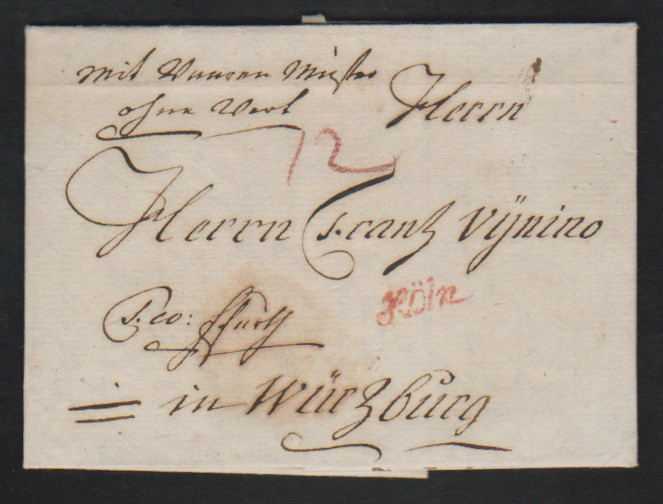 Mit Waaren Muster
ohne Wert Herrn
12
Herrn Franz Vÿnino
Köln
Fco: ffurth
in Würzburg